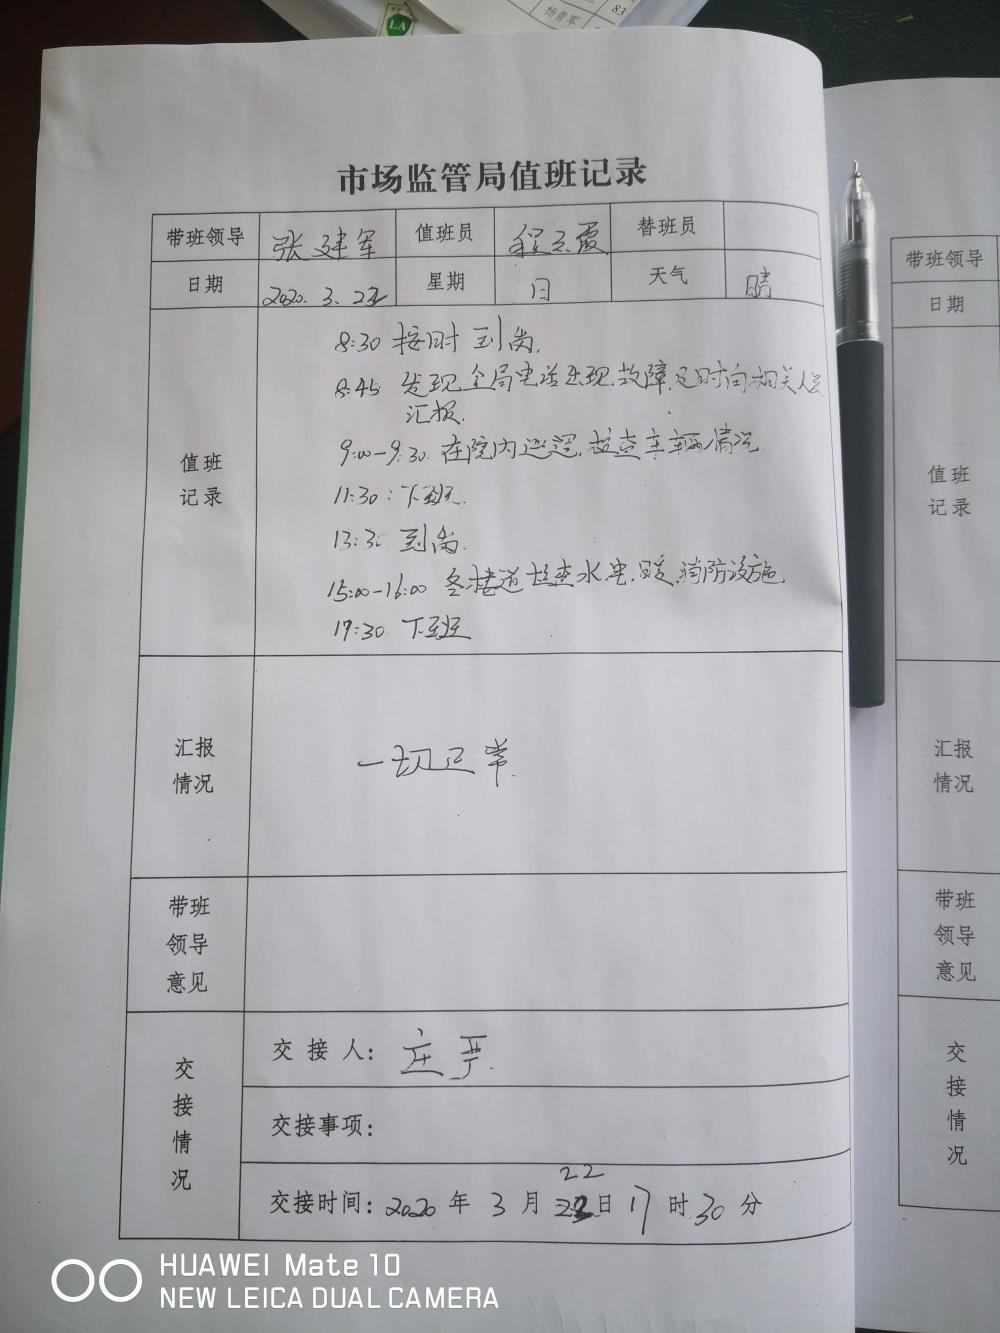 杨青军
83
LA
市场监管局值班记录
带班领导 张建军 值班员 程云霞 替班员
日期 2020.3.22 星期 日 天气 晴
值班
记录
8:30 按时到岗.
8:45 发现全局电话出现故障,及时向相关人员
汇报.
9:00-9:30. 在院内巡逻,检查车辆情况.
11:30: 下班.
13:30 到岗.
15:00-16:00 各楼道检查水电.暖.消防设施.
17:30 下班
汇报
情况
一切正常.
带班
领导
意见
交
接
情
况
交接人: 庄严.
交接事项:
22
交接时间: 2020年 3月 日 17时30分
带班领导
日期
值班
记录
汇报
情况
带班
领导
意见
交
接
情
况
HUAWEI Mate 10
NEW LEICA DUAL CAMERA